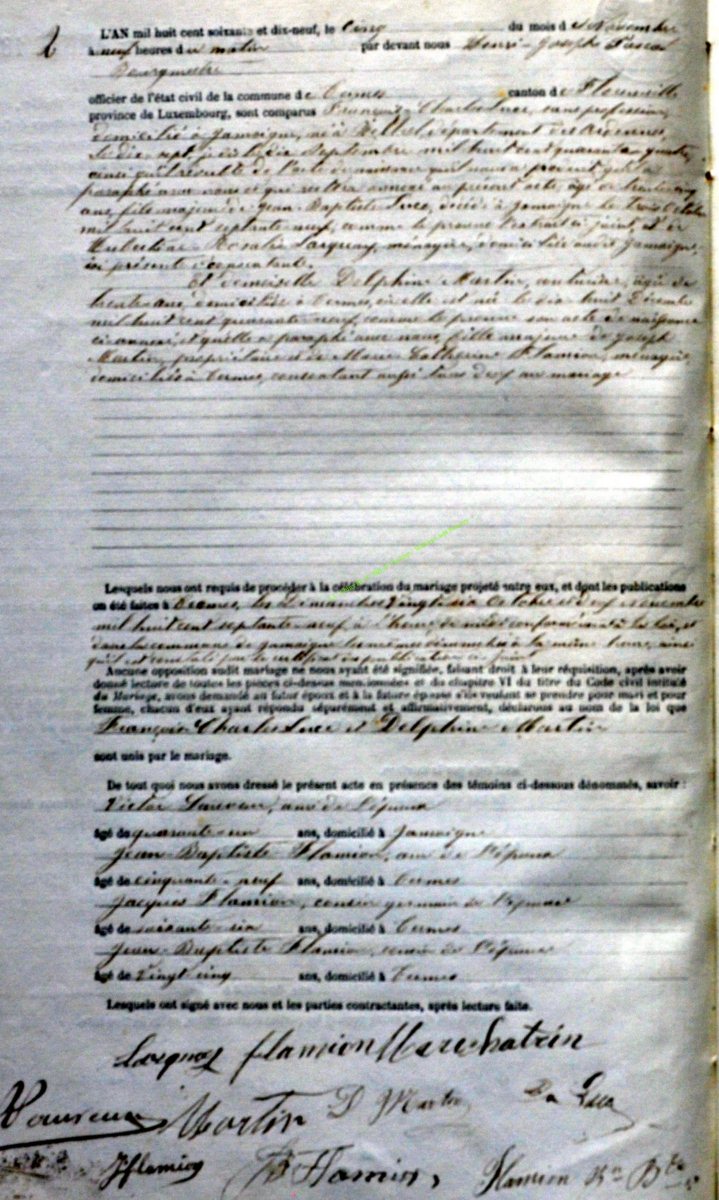 2
L'AN mil huit cent soixante et dix-neuf, le Cinq du mois de Novembre
à neuf heures du matin par devant nous Henri-Joseph
Bourgmestre
officier de l'état civil de la commune de Termes canton de Florenville
province de Luxembourg, sont comparus François Charles Luce, sans profession,
domicilié à Jamoigne, né à département des Ardennes,
le dix sept, je dis le dix Septembre mil huit cent quarante quatre,
ainsi qu'il résulte de l'acte de naissance qu'il nous a produit, qu'il a
paraphé avec nous et qui restera annexé au présent acte, âgé de trente cinq
ans, fils majeur de Jean Baptiste Luce, décédé à Jamoigne le trois Octobre
mil huit cent septante neuf, comme le prouve l'extrait ci joint, et de
Rosalie Lasquay, ménagère, domiciliée audit Jamoigne,
ici présente et consentante.
Et demoiselle Delphine Martin, couturière, âgée de
trente ans, domiciliée à Termes, où elle est née le dix huit Décembre
mil huit cent quarante neuf comme le prouve son acte de naissance
ci annexé, et qu'elle a paraphé avec nous, fille majeure de Joseph
Martin, propriétaire et de Marie Catherine Flamion, ménagère
domiciliés à Termes, consentant aussi tous deux au mariage
Lesquels nous ont requis de procéder à la célébration du mariage projeté entre eux, et dont les publications
on été faites à Termes, les dimanches vingt six Octobre et deux Novembre
mil huit cent septante neuf à l'heure de midi conformément à la loi, et
dans la commune de Jamoigne les mêmes dimanches à la même heure, ainsi
qu'il est constaté par le certificat de publication ci joint.
Aucune opposition audit mariage ne nous ayant été signifiée, faisant droit à leur réquisition, après avoir
donné lecture de toutes les pièces ci-dessus mentionnées et du chapitre VI du titre du Code civil intitulé
du Mariage, avons demandé au futur époux et à la future épouse s'ils veulent se prendre pour mari et pour
femme, chacun d'eux ayant répondu séparément et affirmativement, déclarons au nom de la loi que
François Charles Luce et Delphine Martin
sont unis par le mariage.
De tout quoi nous avons dressé le présent acte en présence des témoins ci-dessous dénommés, savoir :
Victor ami de l'époux
âgé de quarante un ans, domicilié à Jamoigne
Jean-Baptiste Flamion, ami de l'époux
âgé de cinquante-neuf ans, domicilié à Termes
Jacques Flamion, cousin germain de l'épouse
âgé de soixante-six ans, domicilié à Termes
Jean-Baptiste Flamion, cousin de l'épouse
âgé de vingt cinq ans, domicilié à Termes
Lesquels ont signé avec nous et les parties contractantes, après lecture faite.
Lasquay flamion
Martin D Martin
Jflamion Flamion Flamion Jn Bte